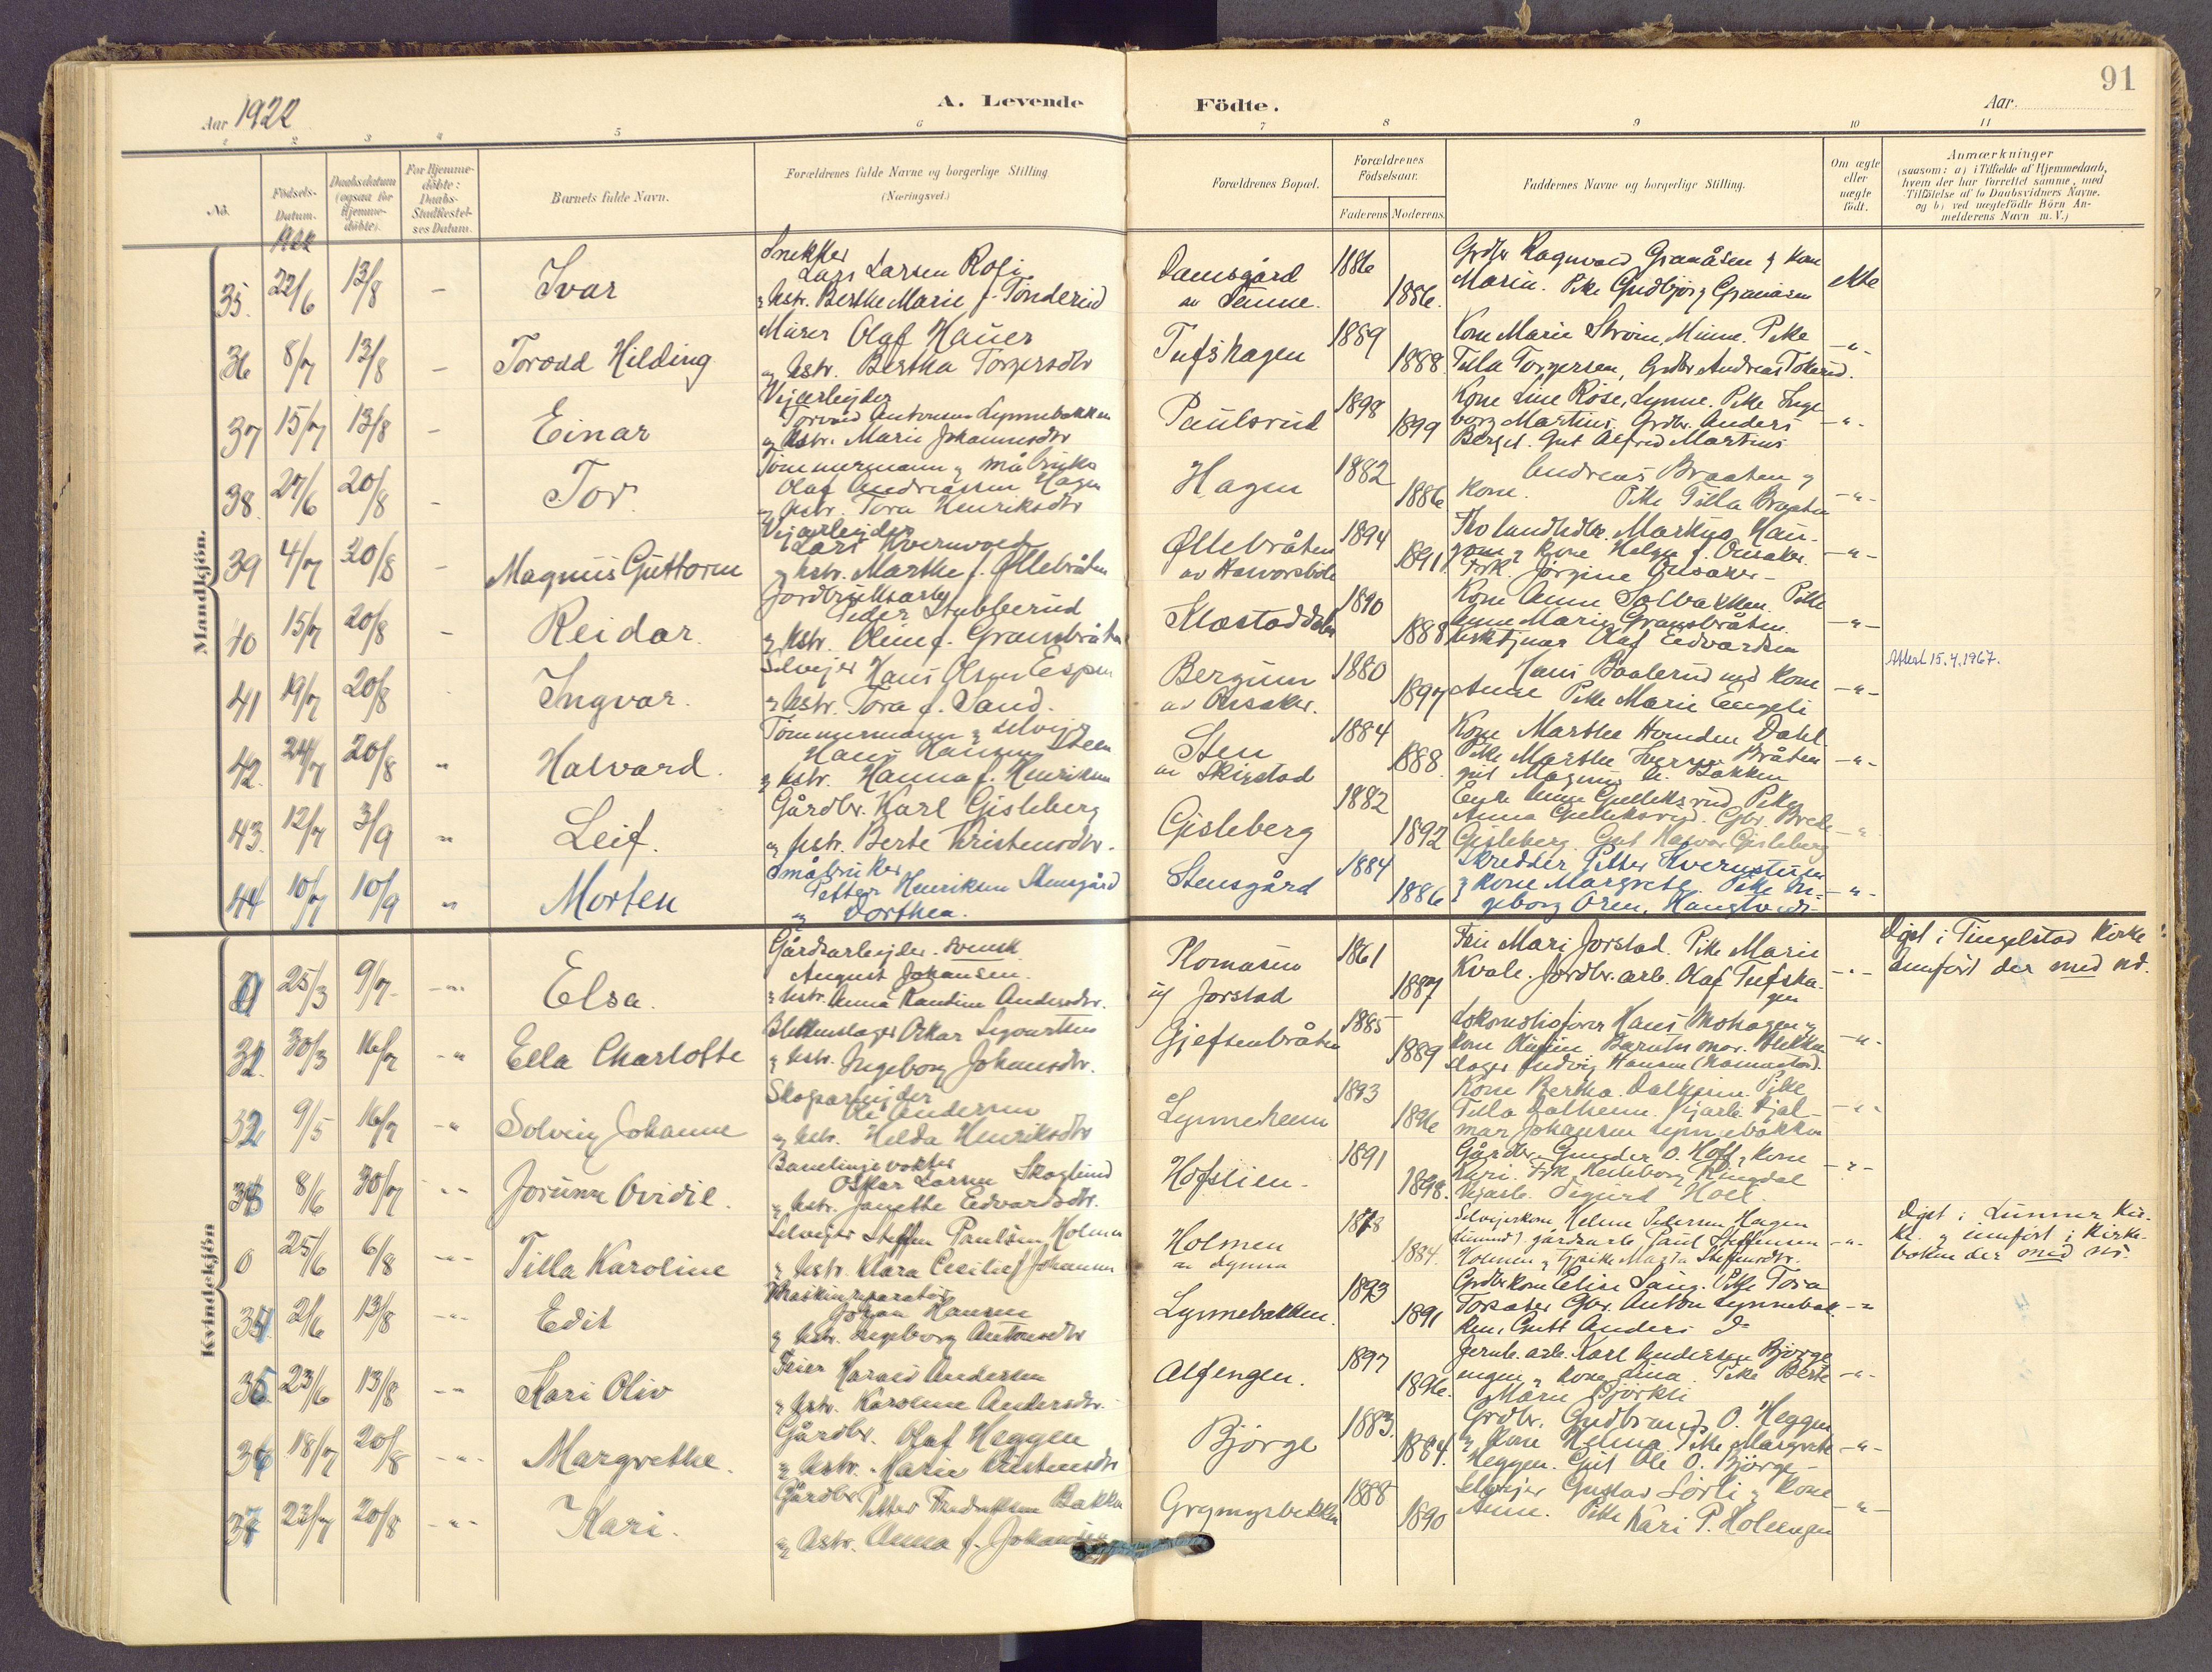 91
Aar 1922
A. Levende Födte.
Aar.
1 2 3 4 5 6 7 8 9 10 11
No.
Födsels-Datum.
Daabsdatum (ogsaa for Hjemmedöbte).
For Hjemmedöbte: Daabs-Stadfestelses Datum.
Barnets fulde Navn.
Forældrenes fulde Navne og borgerlige Stilling (Næringsvei.)
Forældrenes Bopæl.
Forældrenes Födselsaar.
Faderens Moderens
Faddernes Navne og borgerlige Stilling.
Om ægte eller uægte födt.
Anmærkninger
(saasom: a) i Tilfælde af Hjemmedaab, hvem der har forrettet samme, med Tilföielse af to Daabsvidners Navne. og b) ved uægtefödte Börn Anmelderens Navn m. V.)
1922
Mandkjön.
35. 22/6 13/8 - Ivar
Snekker
Lars Larsen Rofi
og hstr. Berthe Marie f. Tønderud
Damsgård
1886
1886.
Grdbr Ragnvald Granåsen og kone
Marie. Pike Gudbjørg Granåsen
ekte
36 8/7 13/8 - Torodd Hilding
Murer Olaf Hauer
og hstr. Bertha Torgersdtr
Tufshagen
1889
1888.
Kone Marie Strøm, Minne. Pike
Tilla Torgersen, Grdbr Andreas Tokerud.
-"-
37 15/7 13/8 - Einar
Vejarbejder
Torvald Antonsen Lynnebakken
og hstr. Marie Johannesdtr
Paulsrud
1898
1899
Kone Line Rose, Lynne. Pike Inge-
borg Martins. Grdbr. Anders
Berget. Gut Alfred Martins
-"-
38. 27/6 20/8 - Tor
Tømmermann og småbruker
Olaf Andreassen Hagen
og hstr. Tora Henriksdtr
Hagen
1882
1886
Andreas Braaten og
kone. Pike Tilla Braaten
-"-
39 4/7 20/8 - Magnus Guttorm
Vejarbejder
og hstr. Marthe f. Øllebråten
Øllebråten
1894
1891.
og kone Helga f. Onsaker.
Frk. Jørgine Onsaker-
-"-
40 15/7 20/8 - Reidar.
Peder Stubberud
og hstr. Oline f. Gransbråten
1890
1888
Kone Anne Solbakken. Pike
Anne Marie Gransbråten.
Olaf Edvardsen
-"-
41 19/7 20/8 Ingvar.
Selvejer Hans Olsen Espen
og hstr. Tora f. Sand.
Bergum
av Onsaker.
1880
1897
Hans Baalerud med kone
Anne Pike Marie Eengeli
-"-
Attest 15.4.1967.
42. 24/7 20/8 " Halvard.
Tømmermann og selvejer
Hans Hansen Steen
og hstr. Hanna f. Henriksen
Sten
av Skirstad
1884
1888
Kone Marthe Dahl.
Pike Marthe Iversen Bråten
gut Magnus A. Bakken
-"-
43. 12/7 3/9 " Leif.
Gårdbr. Karl Gisleberg
og hstr. Berte Kristensdtr.
Gisleberg
1882
1892
Enke Anne Gulleksrud. Pike
Anna Gulleksrud. Gbr. Brede
Gisleberg. Gut Halvor Gisleberg
-"-
44 10/7 10/9 " Morten
Småbruker
Petter Henriksen Stensgård
og Dorthea.
Stensgård
1884
1886
Skredder Petter Kvernstuen
og kone Margrete. Pike In-
geborg Oren,
-"-
Kvindekjön
25/3 9/7 -"- Elsa.
Gårdsarbejder. svensk
August Johansen.
og hstr. Anna Randine Andersdtr.
Plomasin
u/ Jorstad
1861
1887
Fru Mari Jorstad. Pike Marie
Kvale. Jordbr.arb. Olaf Tufsha-
gen
-"-
Døpt i Tingelstad Kirke
innført der med no.
32. 30/3 16/7 -" Ella Charlotte
Blikkenslager Oskar Sivertsen
og hstr. Ingeborg Johansdtr.
Gjeftenbråten
1885
1889
Lokomotivfører Hans Mohagen og
kone Oluffine Barnets mor. Blikken-
slager Ludvig Hansen
-"-
32 9/5 16/7 -" Solveig Johanne
Skogsarbejder
Andersen
og hstr. Hilda Henriksdtr
Lynneheim
1893
1896
Kone Bertha Dalheim. Pike
Tilla Dalheim. Vejarb Hjal-
mar Johansen Lynnebakken
-"-
33 8/6 30/7 -"- Jorunn Ovidie.
Banelinjevokter
Oskar Larsen Skoglund
og hstr. Janette Edvardsdtr.
Hofslien-
1891
1898.
Gårdbr. Gunder O. Hoff og kone
Kari. Frk Heileborg Ringdal
Vejarb. Sigurd Hoel.
-"-
0 25/6 6/8 -"- Tilla Karoline
Selvejer Steffen Paulsen Holmen
og hstr. Klara Cecilie f. Johansen
Holmen
1878
1884.
Selvejerkone Helene Pedersen Hagen
gårdsarb Paul Steffensen
Holmen og Magda Steffensdtr.
-"-
Døpt i Lunner Kir-
ke og innført i Kirke-
boken der med no.
34 2/6 13/8 -"- Edit
Maskinreparatør
Johan Hansen
og hstr. Ingeborg Antonsdtr
Lynnebakken.
1893
1891
Grdbrkone Elise Sang. Pike Tora
Torsater Gbr. Anton Lynnebak-
ken, Gutt Anders do
-"
35 23/6 13/8 -"- Kari Oliv
Feier Harald Andersen
og hstr. Karoline Andersdtr.
Alfengen.
1897
1896.
Jernb. arb. Karl Andersen Bjørge-
engen og kone Lina. Pike Berte
Marie Bjørkli
-"-
36 18/7 20/8 -"- Margrethe.
Gårdbr. Olaf Heggen
og hstr. Marie Kristensdtr
Bjørge
1883.
1884.
Grdbr. Gudbrand O. Heggen
og kone Helma. Pike Margrete
Heggen. Gut Ole O. Bjørge-
-"-
37 23/7 20/8 -"- Kari.
Gårdbr. Petter Fredriksen Bakken
og hstr. Anna f. Johansen
Grymyrbakken
1888
1890
Selvejer Gustav Sørli og kone
Anne. Pike Kari P. Holeengen
-"-